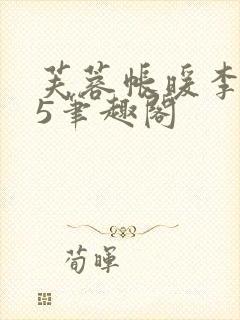 芙蓉帐暖李
5笔趣阁
荀晖